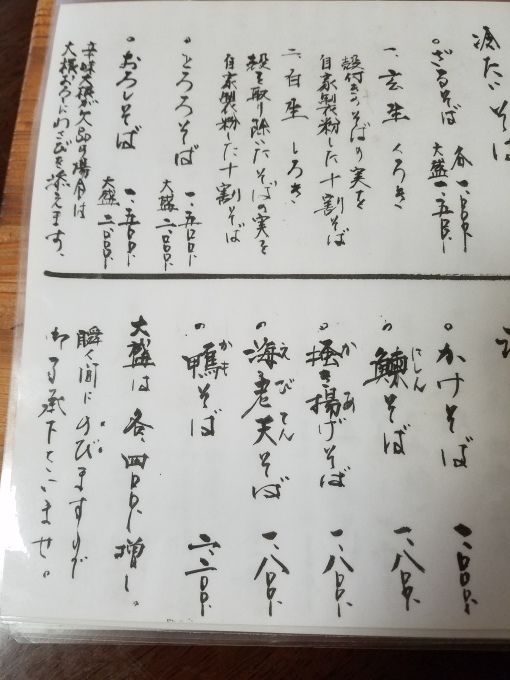 冷たいそば
。ざるそば 各 一、〇〇〇、
大盛 一、五〇〇、
一、玄挽 くろき
殻付きのそばの実を
自家製粉した十割そば
二、白挽 しろき
殻を取り除いたそばの実を
自家製粉した十割そば
。とろろそば 一、五〇〇、
大盛 二、〇〇〇、
。おろしそば 一、五〇〇、
大盛 二、〇〇〇、
辛味大根が欠品の場合は
大根おろしにわさびを添えます、
。かけそば 一、〇〇〇、
。鰊そば 一、八〇〇、
にしん
。掻き揚げそば 一、八〇〇、
か あ
。海老天そば 一、八〇〇、
えびてん
。鴨そば 二、二〇〇、
かも
大盛は各、四〇〇、増し。
瞬く間にのびますので
御了承下さいませ。